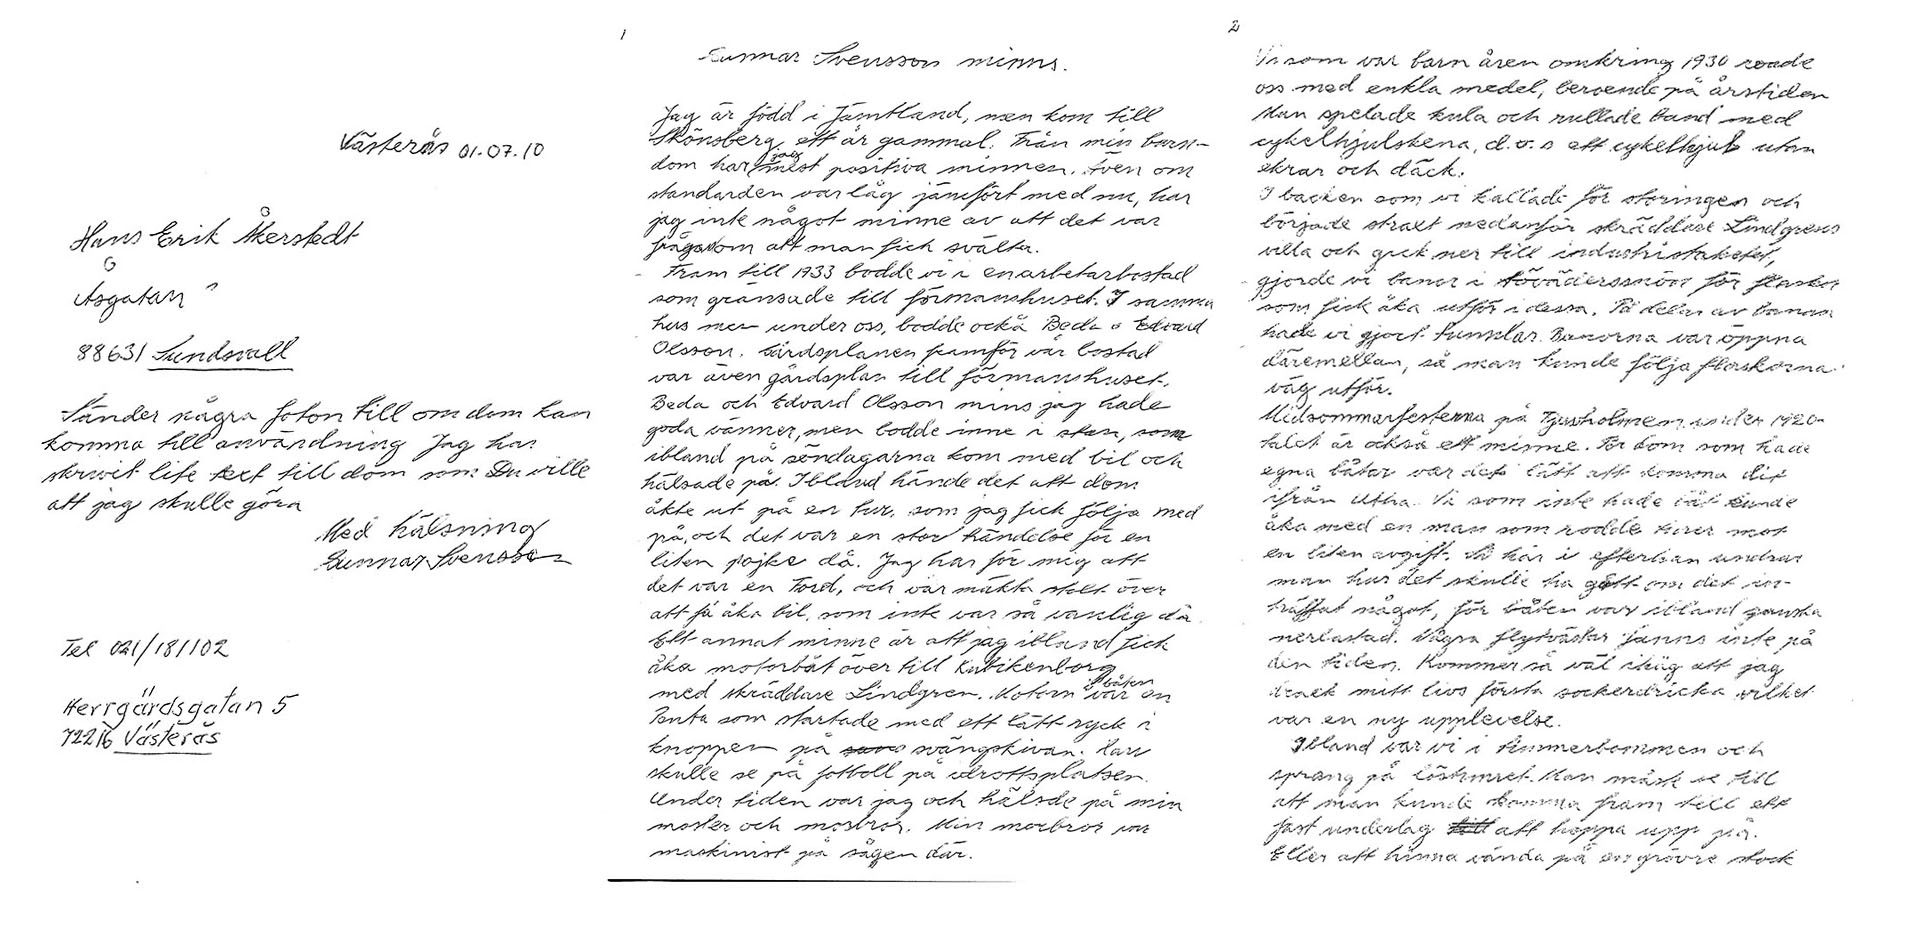 Västerås 01.07.10
Hans Erik Åkerstedt
Åsgatan
88631 Sundsvall
Sänder några foton till om dom kan
komma till användning Jag har
skrivit lite text till dom som Du ville
att jag skulle göra
Med hälsning
Gunnar Svensson
Tel 021/181102
Herrgärdsgatan 5
72216 Västerås
1
Gunnar Svensson minns.
Jag är född i Jämtland, men kom till
Skönsberg, ett år gammal. Från min barn-
dom har jag mest positiva minnen. Även om
standarden var låg jämfört med nu, har
jag inte något minne av att det var
fråga om att man fick svälta.
Fram till 1933 bodde vi i en arbetarbostad
som gränsade till förmanshuset. I samma
hus men under oss, bodde ockå Beda o Edvard
Olsson. Gårdsplanen framför vår bostad
var även gårdsplan till förmanshuset.
Beda och Edvard Olsson mins jag hade
goda vänner, men bodde inne i stan, som
ibland på söndagarna kom med bil och
hälsade på. Ibland hände det att dom
åkte ut på en tur, som jag fick följa med
på, och det var en stor händelse för en
liten pojke då. Jag har för mig att
det var en Ford, och var mäkta stolt över
att få åka bil, som inte var så vanlig då
Ett annat minne är att jag ibland fick
åka motorbåt över till Kubikenborg
med skräddare Lindgren. Motorn i båten var en
Penta som startade med ett lätt ryck i
knoppen på svängskivan. Han
skulle se på fotboll på idrottsplatsen.
Under tiden var jag och hälsde på min
moster och morbror. Min morbror var
maskinist på sågen där.
2
Vi som var barn åren omkring 1930 roade
oss med enkla medel, beroende på årstiden
Man spelade kula och rullade band med
cykelhjulskena, d.v.s ett cykelhjul utan
ekrar och däck.
I backen som vi kallade för störingen och
började straxt nedanför skräddare Lindgrens
villa och gick ner till industristaketet,
gjorde vi banor i tövädersssnön för flaskor
som fick åka utför i dessa. På delar av banan
hade vi gjort tunnlar. Banorna var öppna
däremellan, så man kunde följa flaskorna
väg utför.
Midsommarfesterna på Tjuvholmen under 1920-
talet är också ett minne. För dom som hade
egna båtar var det lätt att komma dit
ifrån Utha. Vi som inte hade båt kunde
åka med en man som rodde turer mot
en liten avgift. Så här i efterhan undrar
man hur det skulle ha gått om det in-
träffat något, för båten var ibland ganska
nerlastad. Några flytvästar fanns inte på
den tiden. Kommer så väl ihåg att jag
drack mitt livs första sockerdricka vilket
var en ny upplevelse.
Ibland var vi i timmerbommen och
sprang på löstimret. Man måste se till
att man kunde komma fram till ett
fast underlag att hoppa upp på.
Eller att hinna vända på en grövre stock